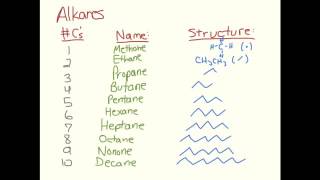 Alkanes
# C's Name: Structure:
1 Methane H-C-H (•)
2 Ethane CH₃CH₃ (/)
3 Propane
4 Butane
5 Pentane
6 Hexane
7 Heptane
8 Octane
9 Nonane
10 Decane